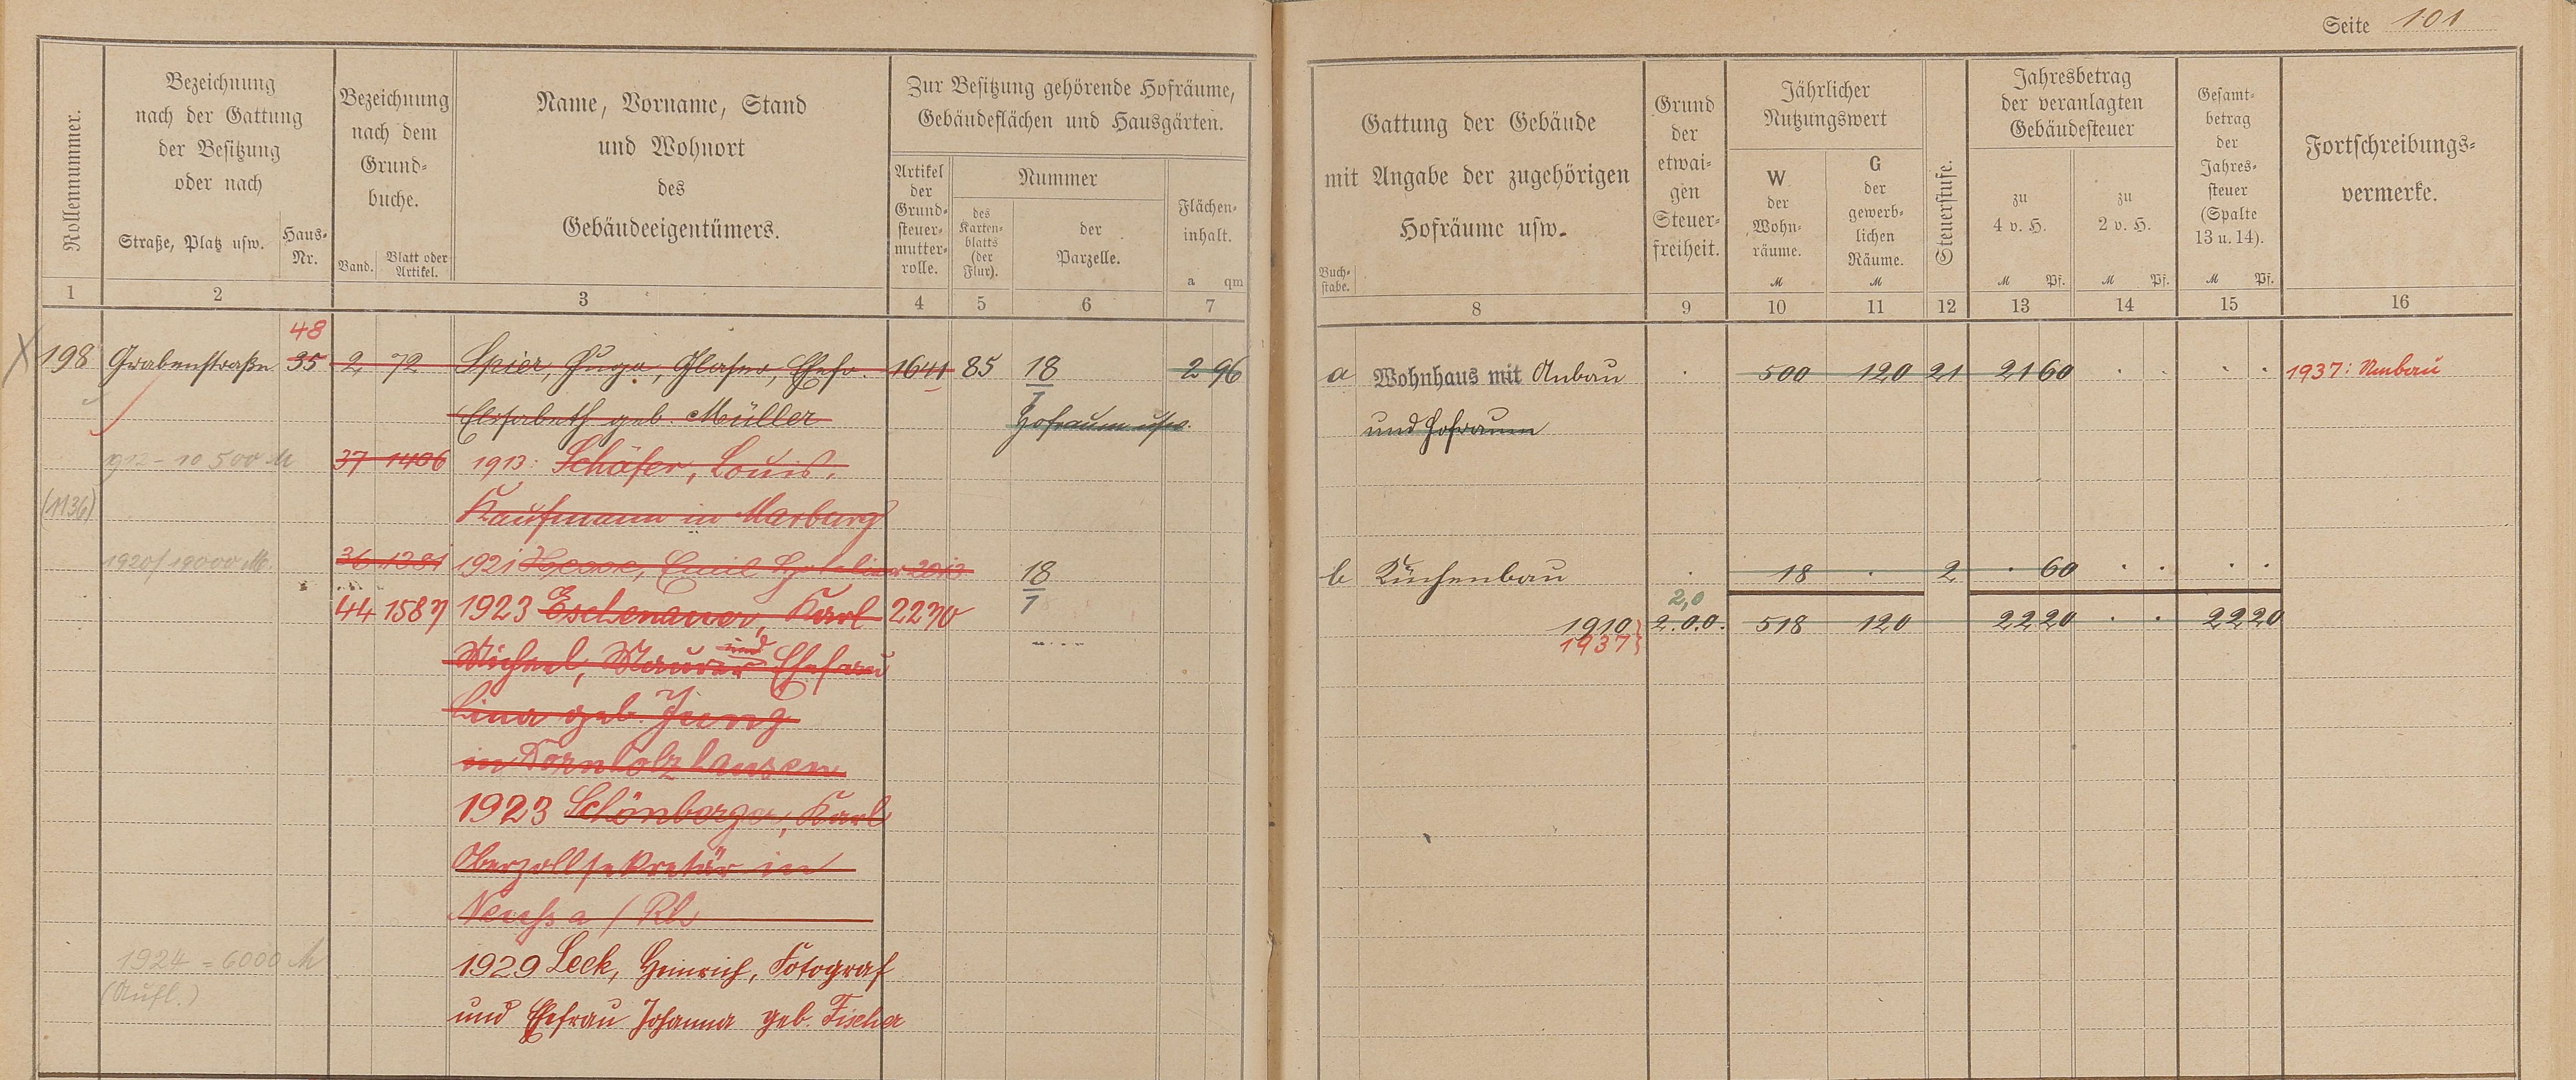 Seite 101
Rollennummer.
Bezeichnung
nach der Gattung
der Besitzung
oder nach
Straße, Platz usw.
Haus-
Nr.
Bezeichnung
nach dem
Grund-
buche.
Band.
Blatt oder
Artikel.
Name, Vorname, Stand
und Wohnort
des
Gebäudeeigentümers.
Zur Besitzung gehörende Hofräume,
Gebäudeflächen und Hausgärten.
Artikel
der
Grund-
steuer-
mutter-
rolle.
Nummer
des
Karten-
blatts
(der
Flur).
der
Parzelle.
Flächen-
inhalt.
a qm
1 2 3 4 5 6 7
48
198 Grabenstraße 35 2 72 Spier, Hugo, Glaser, Ehefr. 1641 85 18/1 2 96
Elisabeth geb. Müller Hofraum usw.
912 - 10 500 M 37 1406 1913: Schäfer, Louis,
(1136) Kaufmann in Marburg
1920/19000 M. 36 1381 1921 Hesse, Emil 2013 18/1
44 1587 1923 Eschenauer, Karl 2270
Michael, Maurer und Ehefrau
Lina geb. Jung
in Dornholzhausen
1923 Schönberger, Karl
Oberzollsekretär in
Neuss a/Rh
1924 = 6000 M 1929 Leck, Heinrich, Fotograf
(Aufl.) und Ehefrau Johanna geb. Fischer
Buch-
stabe.
Gattung der Gebäude
mit Angabe der zugehörigen
Hofräume usw.
Grund
der
etwai-
gen
Steuer-
freiheit.
Jährlicher
Nutzungswert
W
der
Wohn-
räume.
M
G
der
gewerb-
lichen
Räume.
M
Steuerstufe.
Jahresbetrag
der veranlagten
Gebäudesteuer
zu
4 v. H.
M Pf.
zu
2 v. H.
M Pf.
Gesamt-
betrag
der
Jahres-
steuer
(Spalte
13 u. 14).
M Pf.
Fortschreibungs-
vermerke.
8 9 10 11 12 13 14 15 16
a Wohnhaus mit Anbau . 500 120 21 21 60 . . . . 1937: Umbau
und Hofraum
b Küchenbau . 18 . 2 . 60 . . . .
2,0
1910 2.0.0. 518 120 22 20 . . 22 20
1937